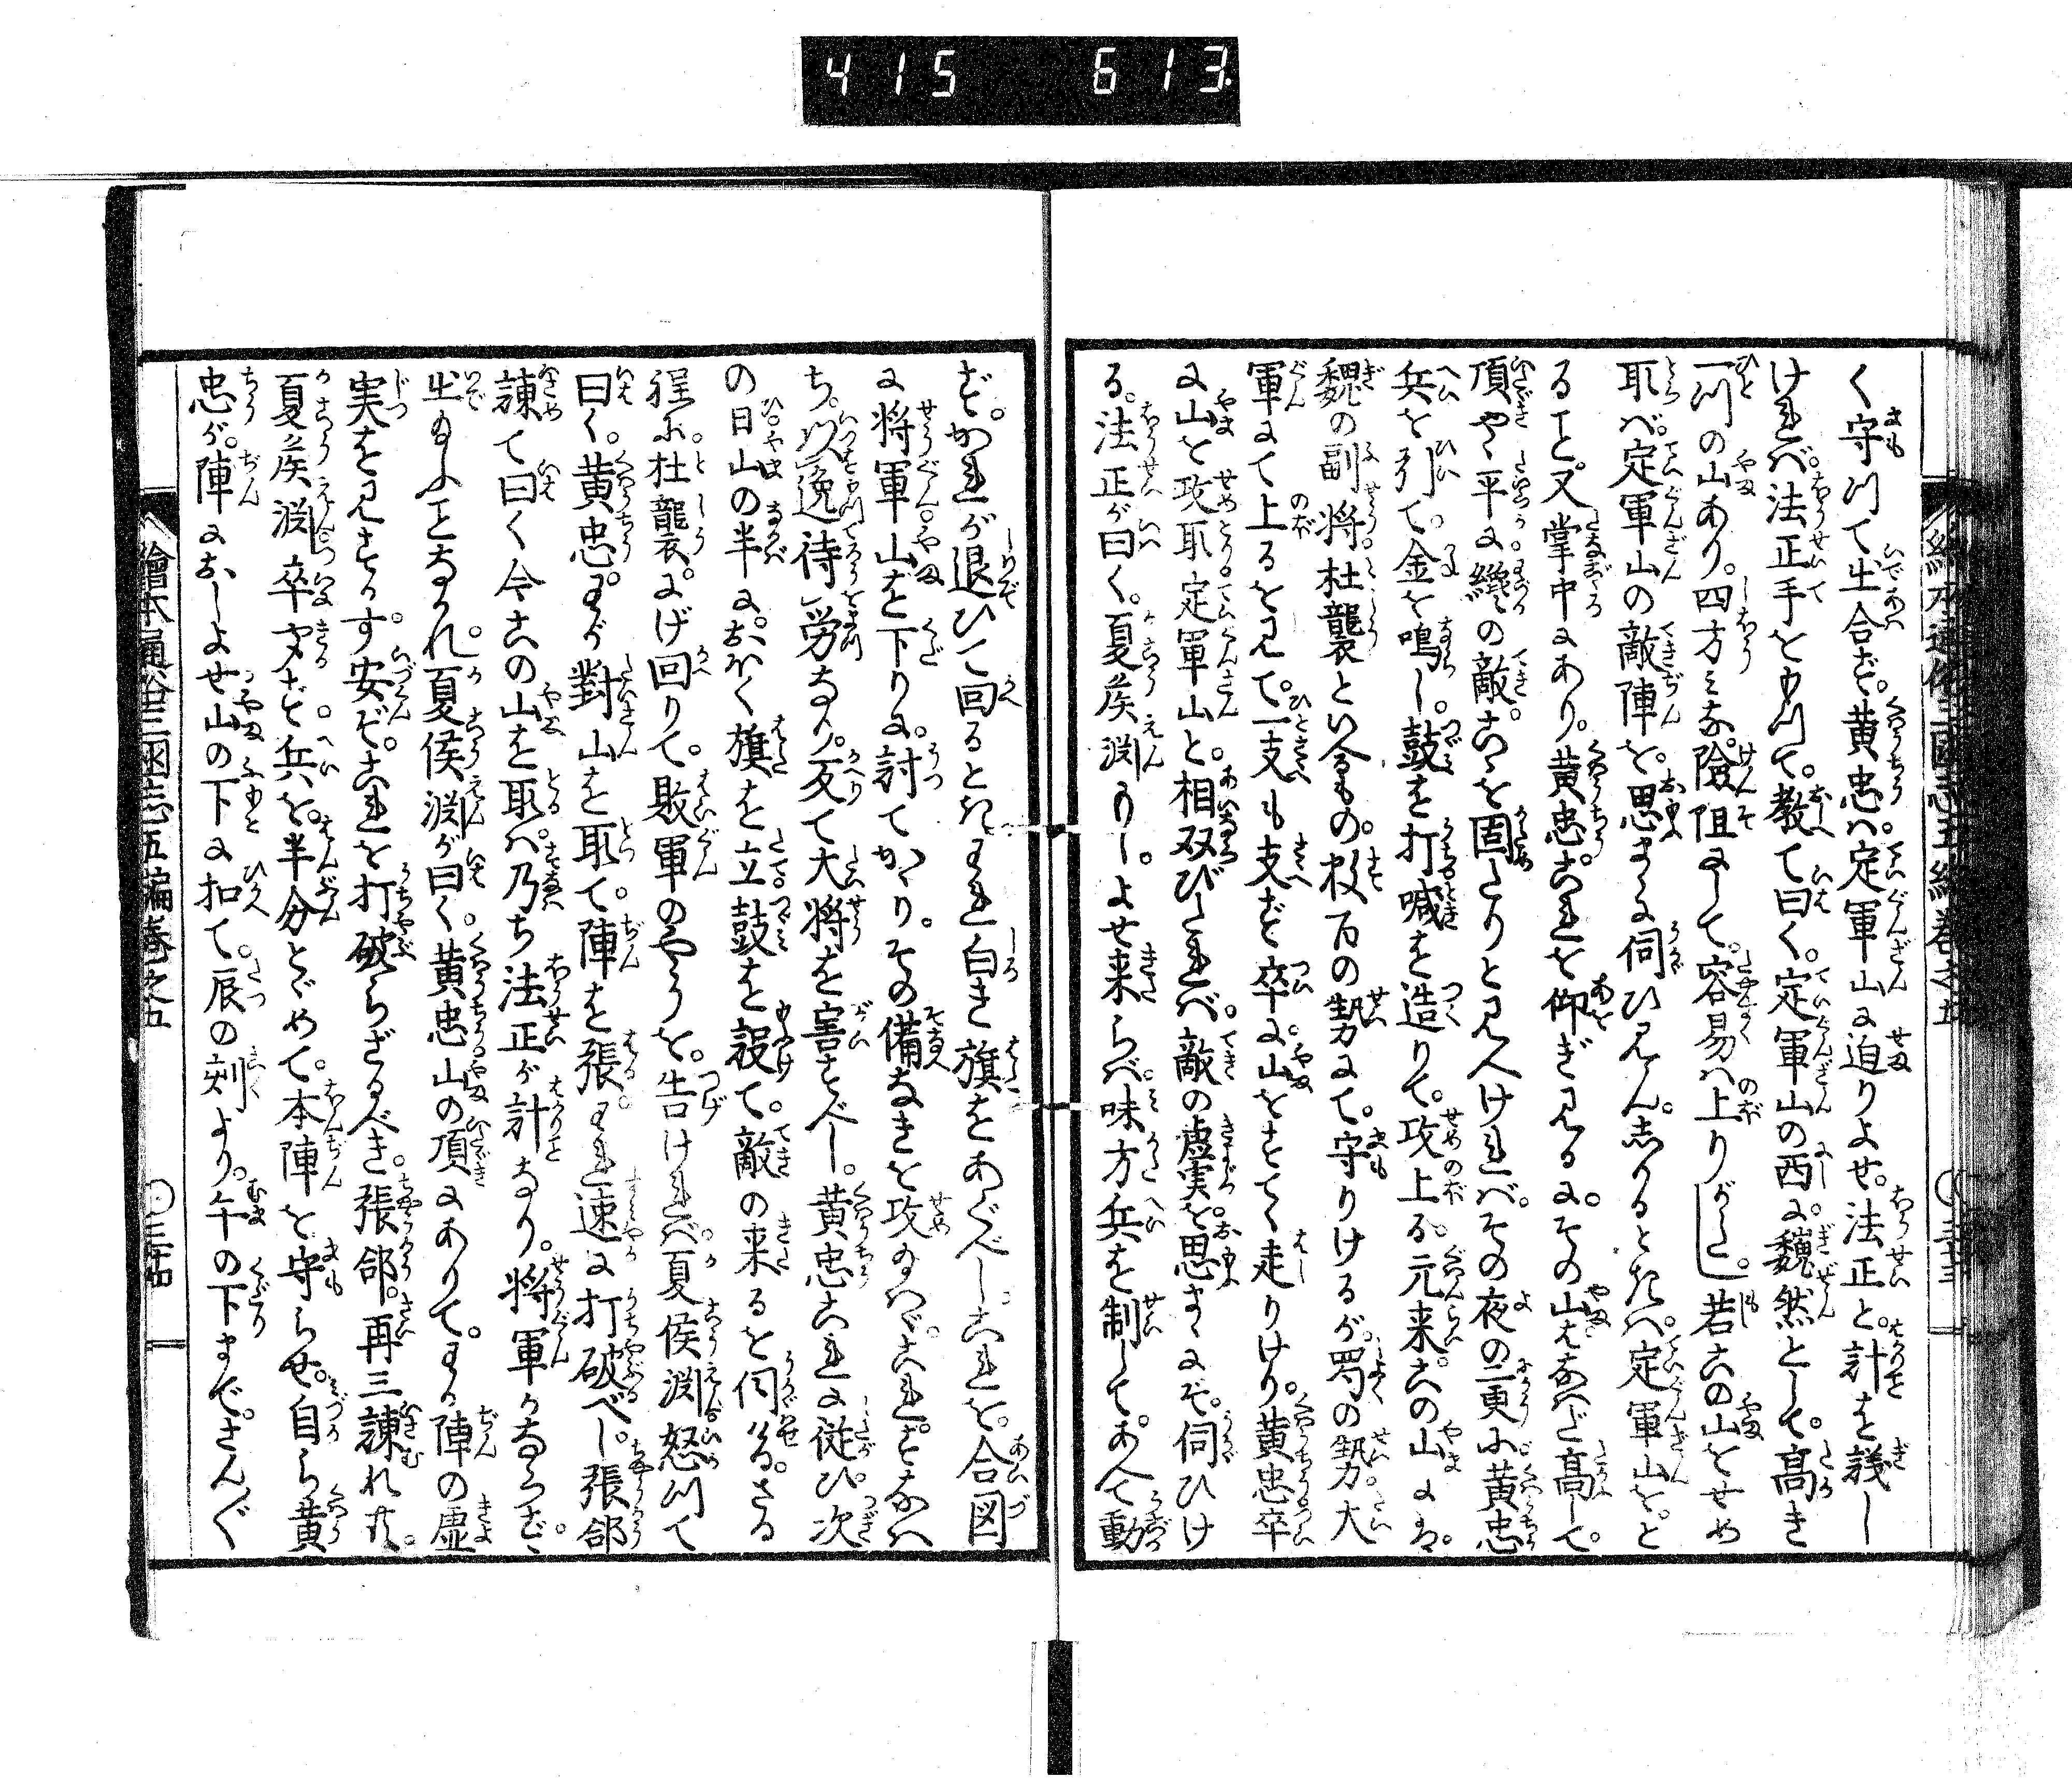 415 613
く守つて出合ず。黄忠ハ。定軍山に迫りよせ。法正と。計を議し
ければ。法正手をもつて。教て曰く。定軍山の西に。巍然として。高き
一ツの山あり。四方ミな。險阻にして。容易ハ上りがたし。若この山をせめ
取バ。定軍山の敵陣を。思まゝに伺ひ見ん。しかるときハ。定軍山を。と
ること又掌中にあり。黄忠これを仰ぎ見るに。その山さほど高して。
頂やゝ平に。纔の敵。こゝを固たりと見へければ。その夜の二更に。黄忠
兵を引て。金を鳴し。鼓を打喊を造りて。攻上る。元来。この山にハ。
魏の副将。杜襲といへるもの。数百の勢にて。守りけるが。蜀の勢。大
軍にて上るを見て。一支も支ず卒に。山をすてゝ走りけり。黄忠卒
に山を攻取。定軍山と。相双びたれば。敵の虚実を。思まゝにぞ。伺ひけ
る。法正が曰く。夏侯淵もし。よせ来らば。味方兵を制して。あへて動
ず。かれが退ひて回るときわれ白き旗をあぐべしこれを。合図
に将軍。山を下りに。討てかゝり。その備なきを攻めハゞ。これ。をなハ
ち。以逸待労なり。反て大将を害すべし。黄忠これに従ひ。次
の日。山の半に。おほく旗を立。鼓を設て。敵の来るを伺ける。さる
程に。杜襲。にげ回りて。敗軍のやうを。告ければ。夏侯淵。怒つて
曰く。黄忠。わが對山を取て。陣を張。われ速に打破べし。張郃
諌て曰く今この山を取ハ。乃ち法正が計なり。将軍かならず。
出給ふことなかれ。夏侯淵が曰く。黄忠山の頂にありて。わが陣の虚
実を見すかす。安ぞ。これを打破らざるべき。張郃。再三諌れ共。
夏侯淵卒に聞ず。兵を。半分とゞめて。本陣を守らせ。自ら黄
忠が。陣におしよせ山の下に扣て。辰の刻より。午の下まで。さんぐ
繪本通俗三國志五編巻之五
三十三
繪本通俗三國志五編巻之五
三十四